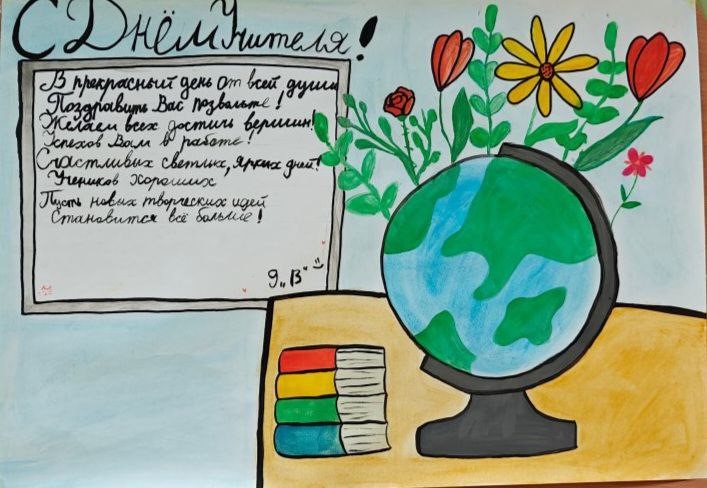 С Днём Учителя!
В прекрасный день от всей души
Поздравить Вас позвольте!
Желаем всех достичь вершин!
Успехов Вам в работе!
Счастливых светлых, ярких дней!
Учеников хороших
Пусть новых творческих идей
Становится всё больше!
9 „В"